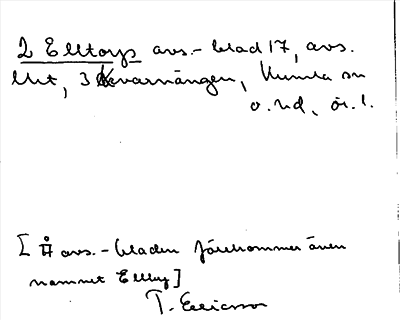 2 Elltorp avs.-blad 17, avs.
Ult, 3 Kvarnängen, Kumla sn
o. hd, ör. l.
[På avs.-bladen förekommer även
namnet Ellby]
T. Ericsson